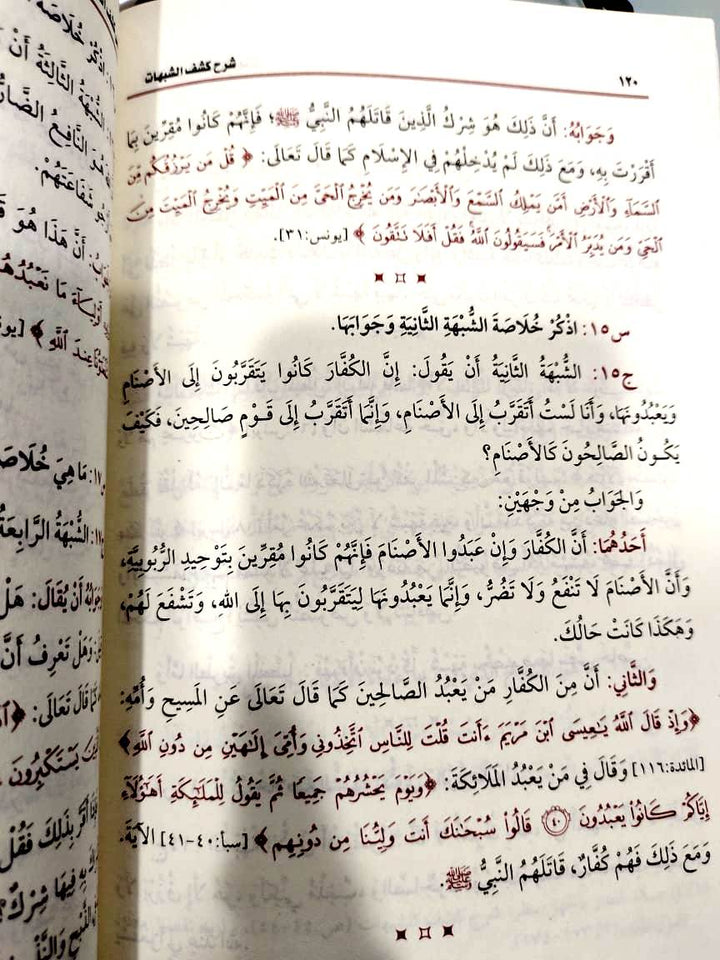 ١٢٠
شرح كشف الشبهات
وَجَوَابُهُ: أَنَّ ذَلِكَ هُوَ شِرْكُ الَّذِينَ قَاتَلَهُمُ النَّبِيُّ ﷺ؛ فَإِنَّهُمْ كَانُوا مُقِرِّينَ بِمَا
أَقْرَرْتَ بِهِ، وَمَعَ ذَلِكَ لَمْ يُدْخِلْهُمْ فِي الإِسْلَامِ كَمَا قَالَ تَعَالَى: ﴿ قُلْ مَن يَرْزُقُكُم مِّنَ
السَّمَآءِ وَالْأَرْضِ أَمَّن يَمْلِكُ السَّمْعَ وَالْأَبْصَٰرَ وَمَن يُخْرِجُ الْحَيَّ مِنَ الْمَيِّتِ وَيُخْرِجُ الْمَيِّتَ مِنَ
الْحَيِّ وَمَن يُدَبِّرُ الْأَمْرَ فَسَيَقُولُونَ اللَّهُ فَقُلْ أَفَلَا تَتَّقُونَ ﴾ [يونس:٣١].
س١٥: اذْكُرْ خُلَاصَةَ الشُّبْهَةِ الثَّانِيَةِ وَجَوَابَهَا.
ج١٥: الشُّبْهَةُ الثَّانِيَةُ أَنْ يَقُولَ: إِنَّ الكُفَّارَ كَانُوا يَتَقَرَّبُونَ إِلَى الأَصْنَامِ
وَيَعْبُدُونَهَا، وَأَنَا لَسْتُ أَتَقَرَّبُ إِلَى الأَصْنَامِ، وَإِنَّمَا أَتَقَرَّبُ إِلَى قَوْمٍ صَالِحِينَ، فَكَيْفَ
يَكُونُ الصَّالِحُونَ كَالأَصْنَامِ؟
وَالجَوَابُ مِنْ وَجْهَيْنِ:
أَحَدُهُمَا: أَنَّ الكُفَّارَ وَإِنْ عَبَدُوا الأَصْنَامَ فَإِنَّهُمْ كَانُوا مُقِرِّينَ بِتَوْحِيدِ الرُّبُوبِيَّةِ،
وَأَنَّ الأَصْنَامَ لَا تَنْفَعُ وَلَا تَضُرُّ، وَإِنَّمَا يَعْبُدُونَهَا لِيَتَقَرَّبُونَ بِهَا إِلَى اللهِ، وَتَشْفَعَ لَهُمْ،
وَهَكَذَا كَانَتْ حَالُكَ.
وَالثَّانِي: أَنَّ مِنَ الكُفَّارِ مَنْ يَعْبُدُ الصَّالِحِينَ كَمَا قَالَ تَعَالَى عَنِ المَسِيحِ وَأُمِّهِ:
﴿وَإِذْ قَالَ اللَّهُ يَٰعِيسَى ابْنَ مَرْيَمَ ءَأَنتَ قُلْتَ لِلنَّاسِ اتَّخِذُونِي وَأُمِّيَ إِلَٰهَيْنِ مِن دُونِ اللَّهِ﴾
[المائدة:١١٦] وَقَالَ فِي مَنْ يَعْبُدُ المَلَائِكَةَ: ﴿وَيَوْمَ يَحْشُرُهُمْ جَمِيعًا ثُمَّ يَقُولُ لِلْمَلَٰٓئِكَةِ أَهَٰٓؤُلَآءِ
إِيَّاكُمْ كَانُوا يَعْبُدُونَ ٤٠ قَالُوا سُبْحَٰنَكَ أَنتَ وَلِيُّنَا مِن دُونِهِم﴾ [سبأ:٤٠-٤١] الآيَةَ.
وَمَعَ ذَلِكَ فَهُمْ كُفَّارٌ، قَاتَلَهُمُ النَّبِيُّ ﷺ.